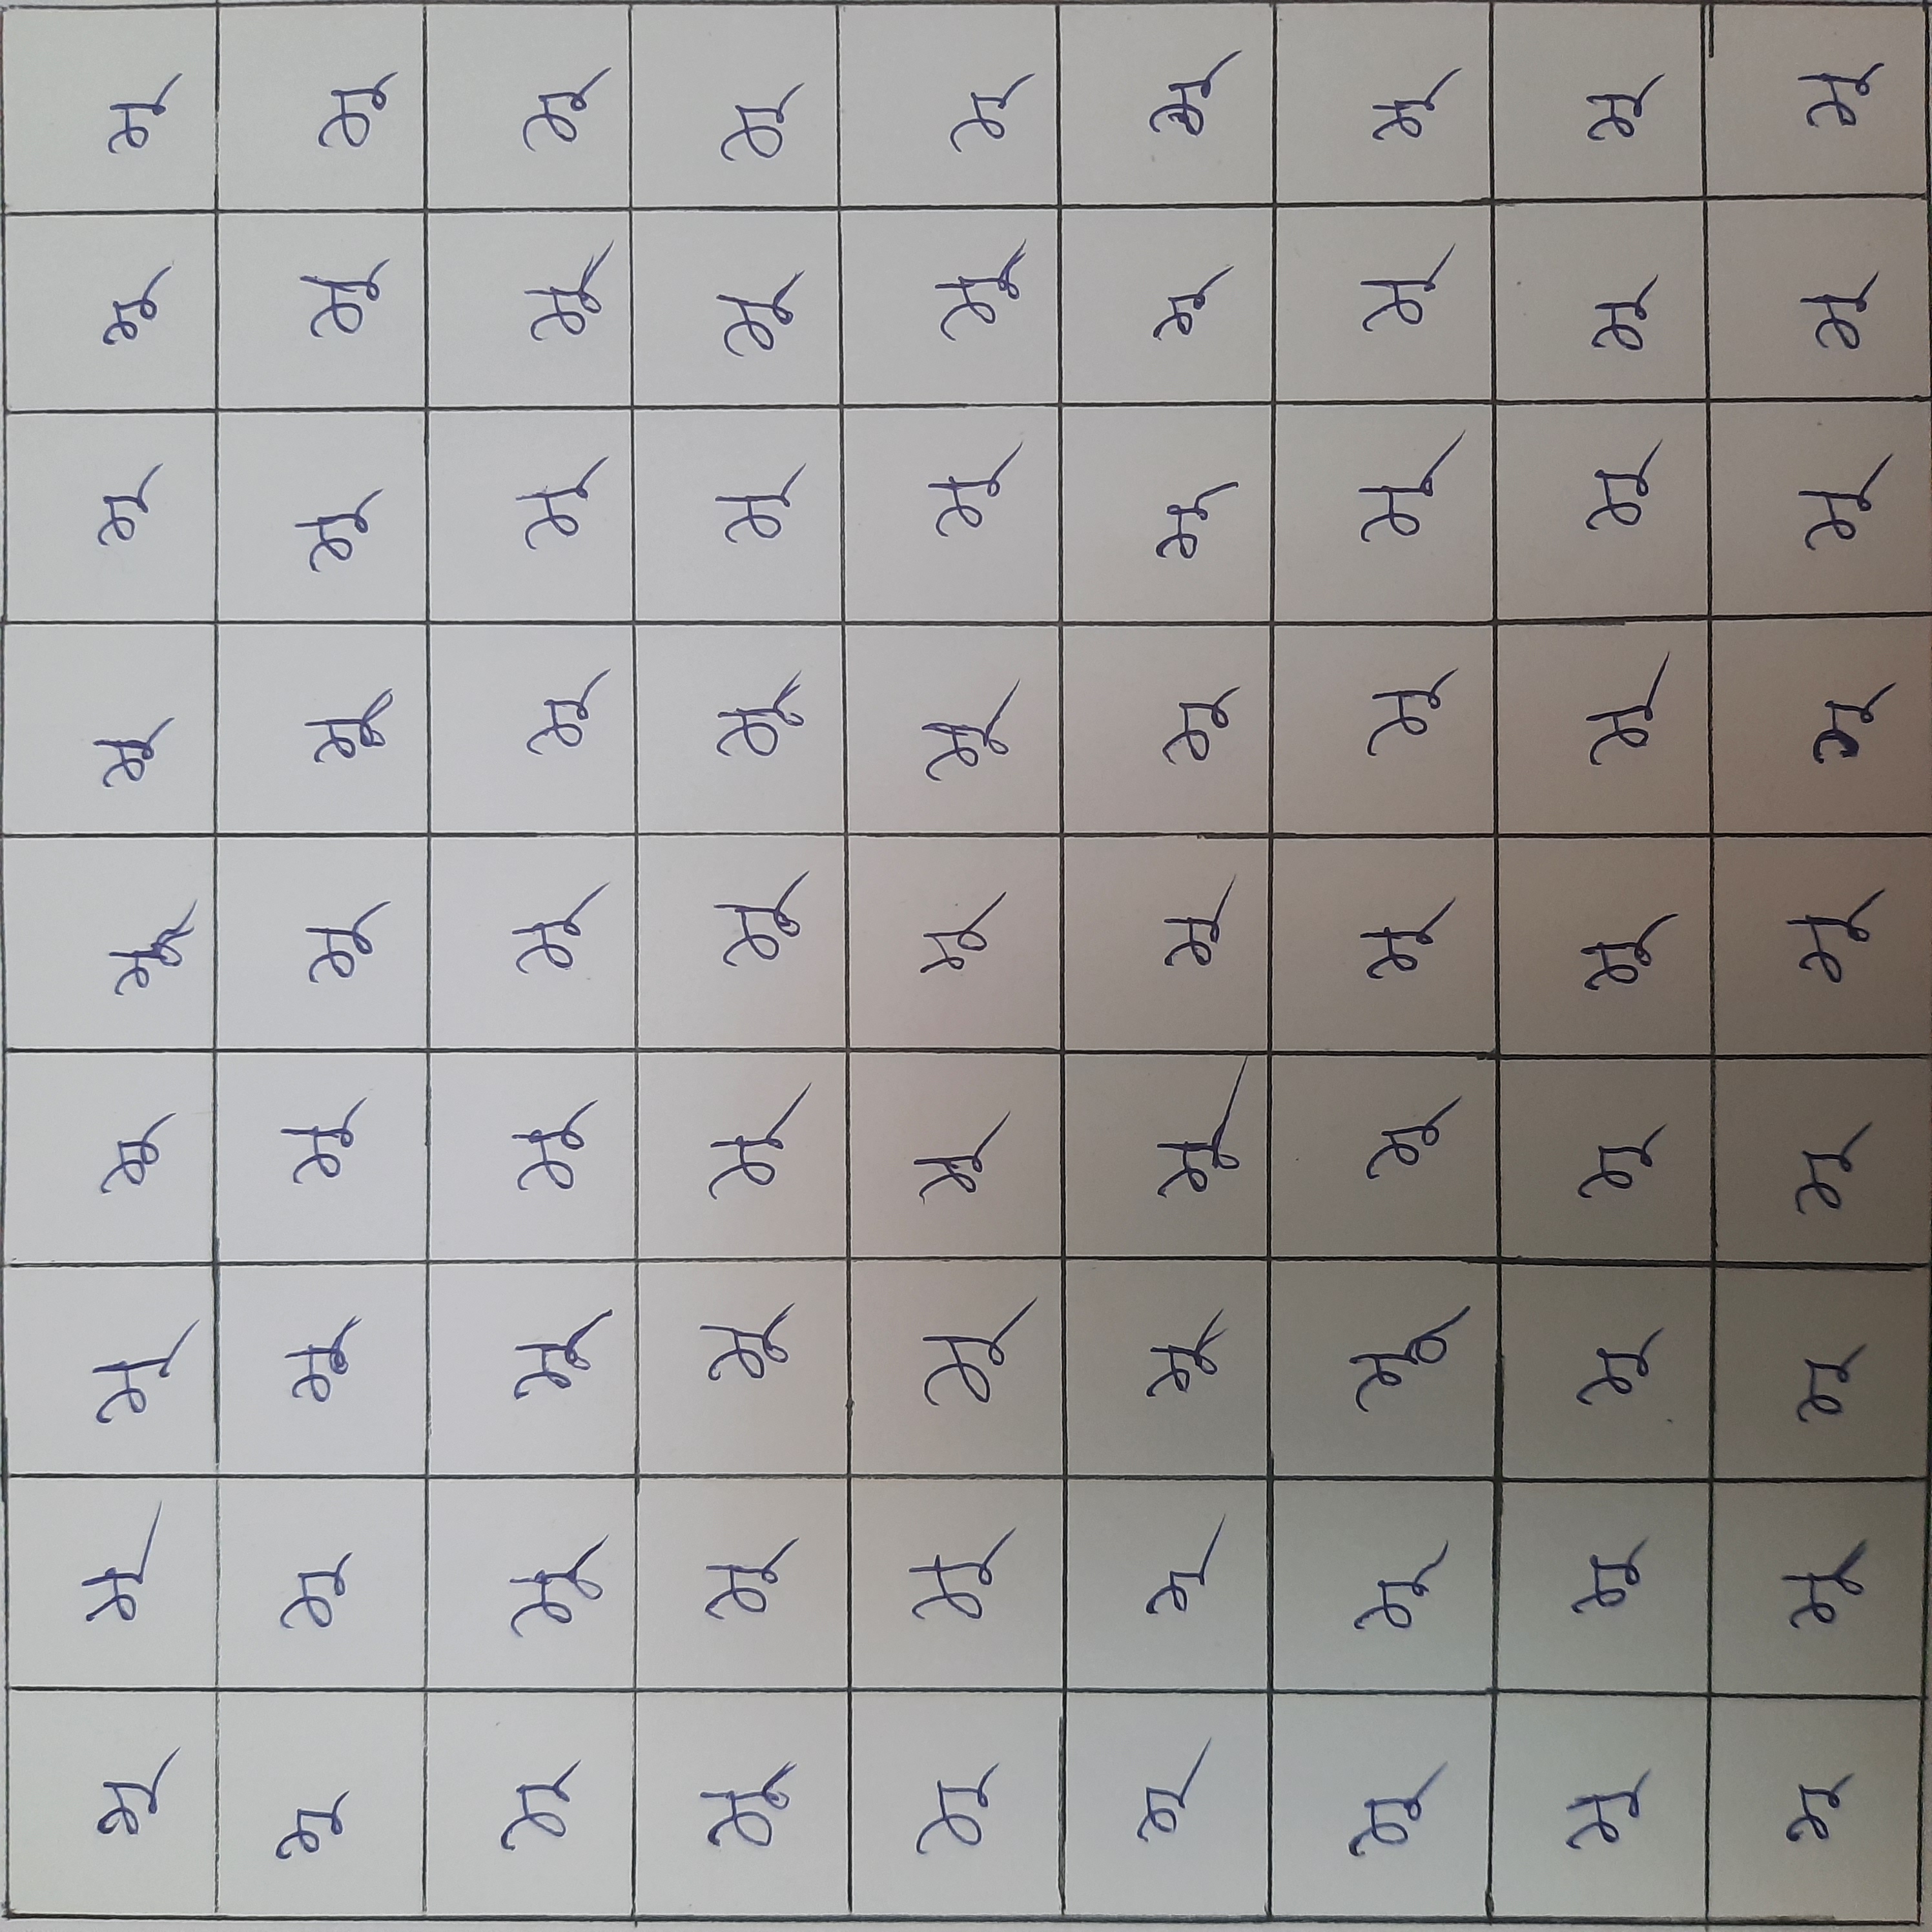 ભૂ ભૂ ભૂ ભૂ ભૂ ભૂ ભૂ ભૂ ભૂ
ભૂ ભૂ ભૂ ભૂ ભૂ ભૂ ભૂ ભૂ ભૂ
ભૂ ભૂ ભૂ ભૂ ભૂ ભૂ ભૂ ભૂ ભૂ
ભૂ ભૂ ભૂ ભૂ ભૂ ભૂ ભૂ ભૂ ભૂ
ભૂ ભૂ ભૂ ભૂ ભૂ ભૂ ભૂ ભૂ ભૂ
ભૂ ભૂ ભૂ ભૂ ભૂ ભૂ ભૂ ભૂ ભૂ
ભૂ ભૂ ભૂ ભૂ ભૂ ભૂ ભૂ ભૂ ભૂ
ભૂ ભૂ ભૂ ભૂ ભૂ ભૂ ભૂ ભૂ ભૂ
ભૂ ભૂ ભૂ ભૂ ભૂ ભૂ ભૂ ભૂ ભૂ